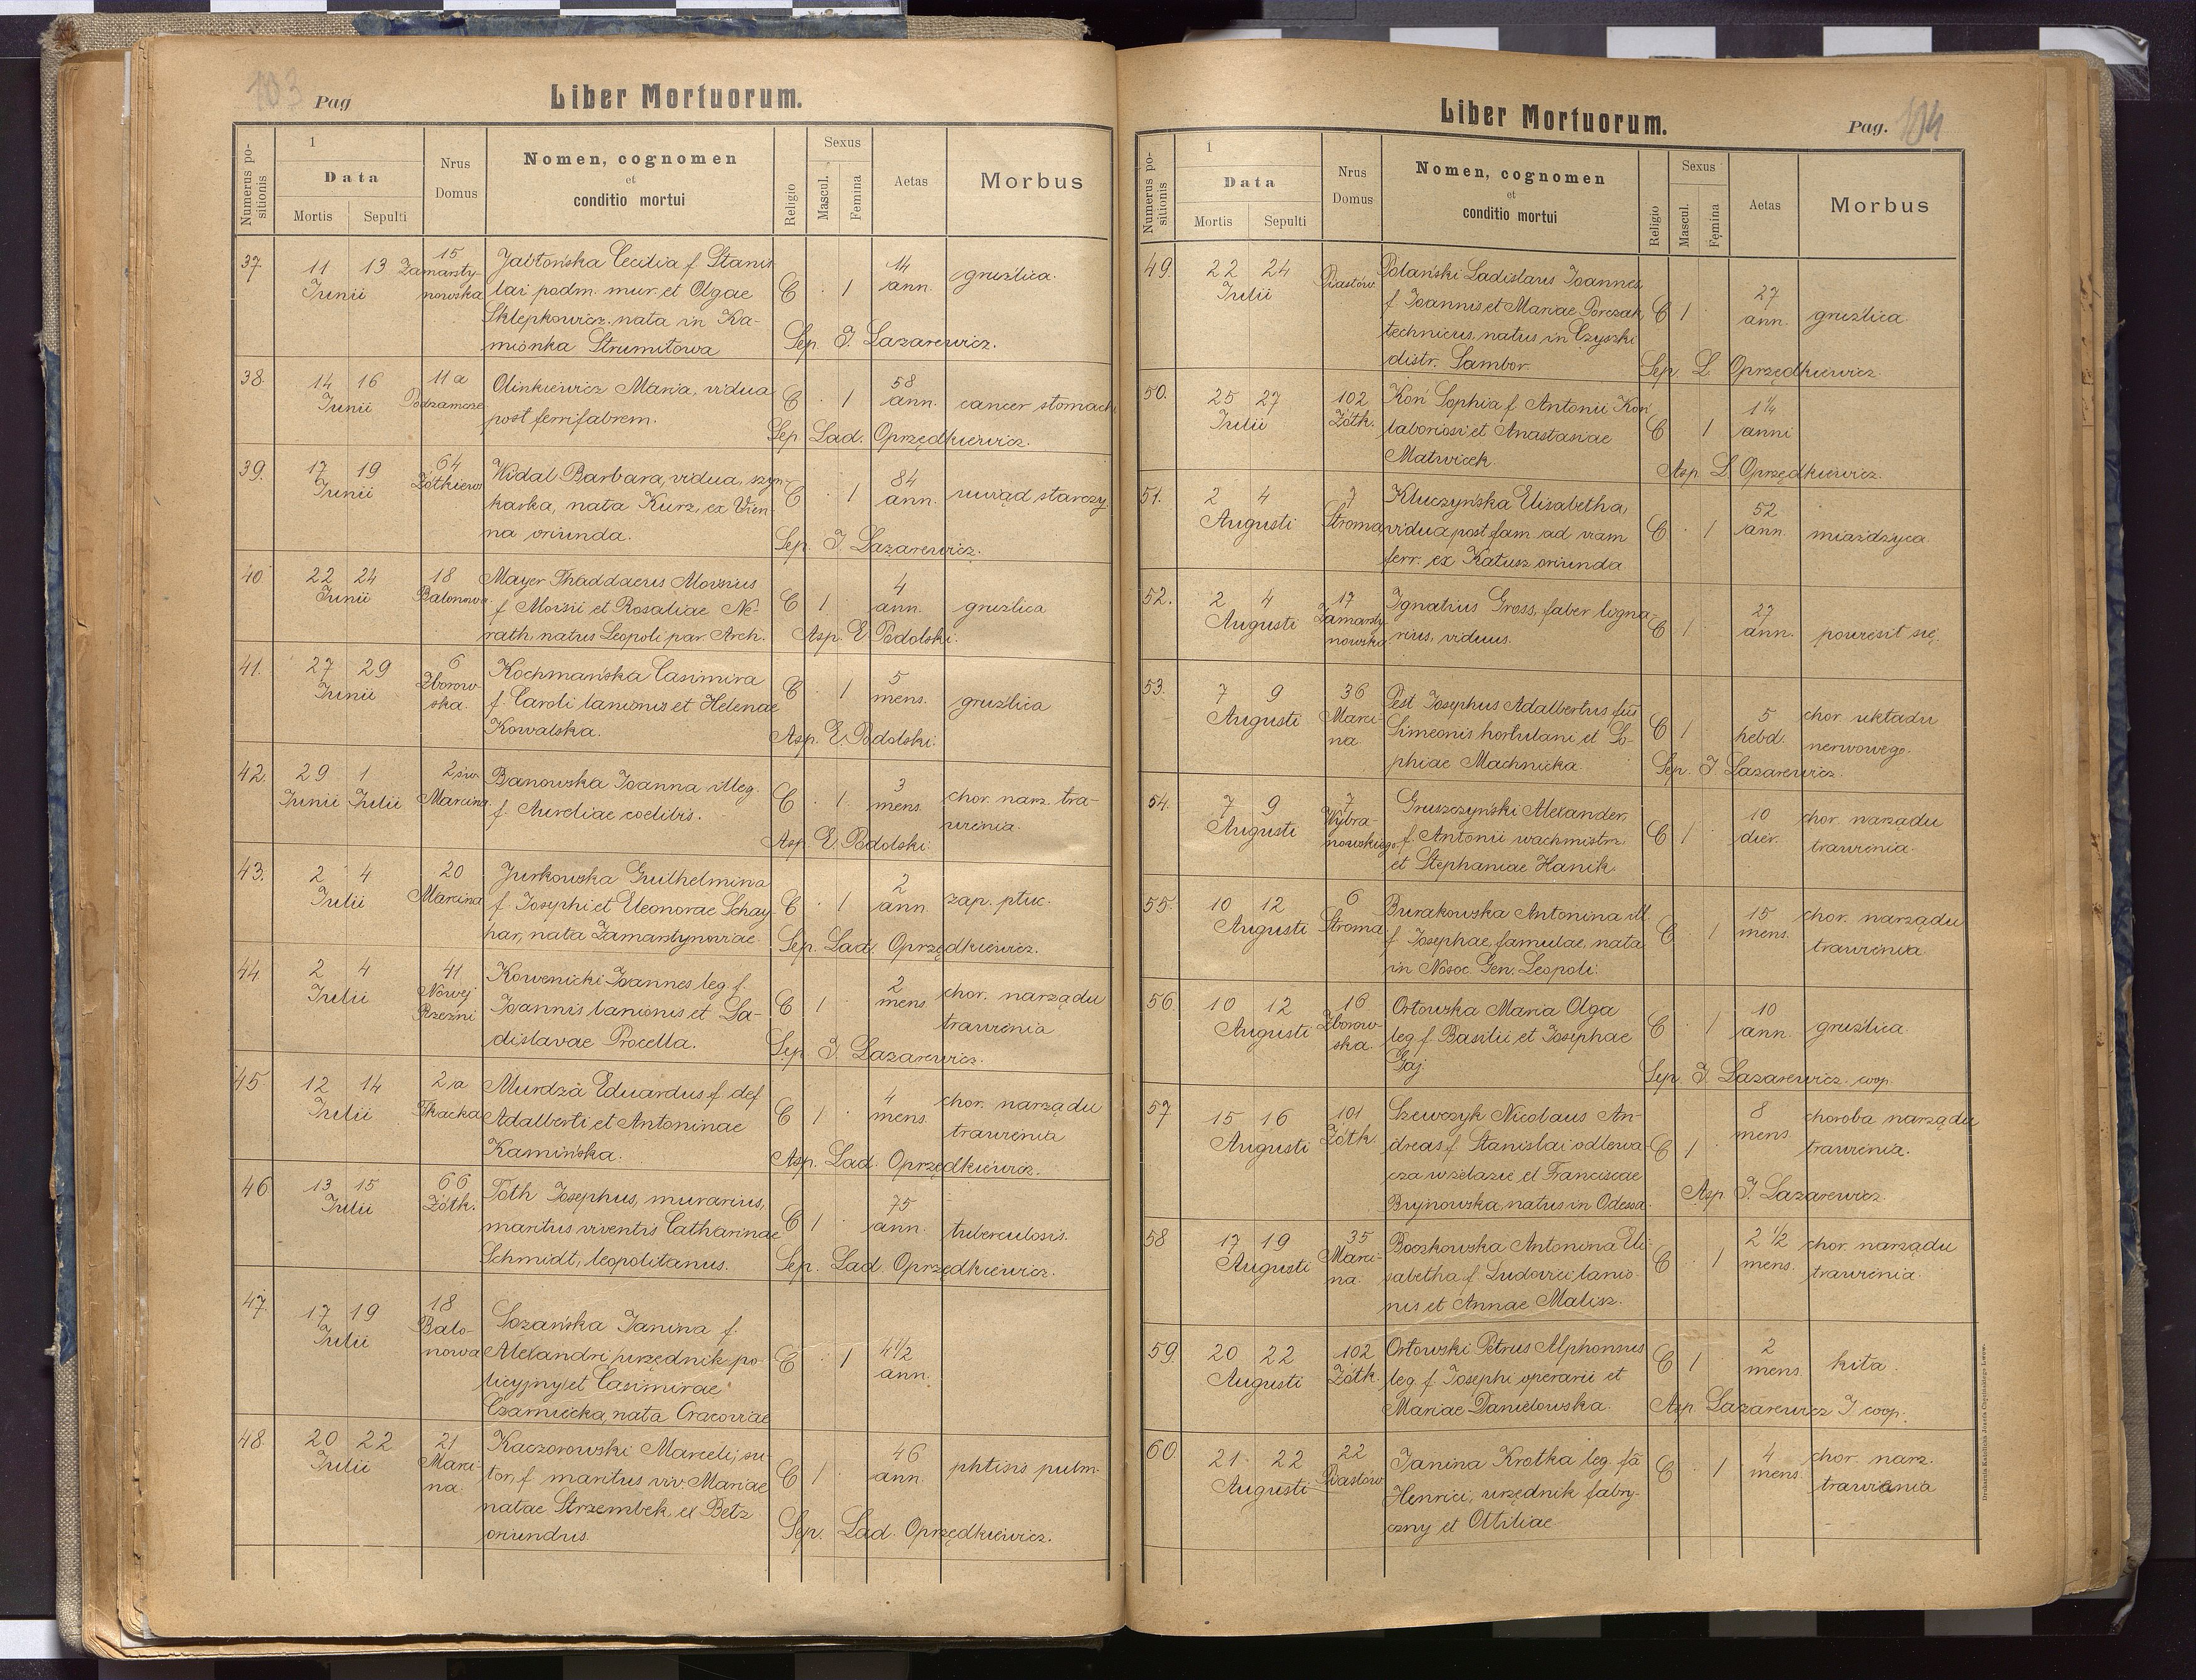 103 Pag
Liber Mortuorum.
Numerus positionis
1
Data
Mortis Sepulti
Nrus Domus
Nomen, cognomen
et
conditio mortui
Religio
Sexus
Mascul. Femina
Aetas
Morbus
37. 11 13 Junii 15 Zamarsty-
nowska
Jabłońska Cecilia f. Stanis
lai podm. mur. et Olgae
Sklepkowicz, nata in Ka-
mionka Strumiłowa
C · 1 14 ann. gruźlica.
Sep. J. Lazarewicz.
38. 14 16 Junii 11a Podzamcze
Olinkiewicz Maria, vidua
post ferrifabrem.
C · 1 58 ann. cancer stomachi
Sep. Lad. Oprzędkiewicz.
39. 17 19 Junii 64 Żółkiew
Widal Barbara, vidua, szyn-
karka, nata Kurz, ex Vien
na oriunda.
C · 1 84 ann. uwiąd starczy
Sep. J. Lazarewicz.
40 22 24 Junii 18 Balonowa
Mayer Thaddaeus Aloisius
f. Aloisii et Rosaliae Ne-
rath, natus Leopoli par. Arch.
C 1 · 4 ann. gruźlica
Asp. E. Podolski.
41. 27 29 Junii 6 Zborow-
ska.
Kochmańska Casimira
f. Caroli lanionis et Helenae
Kowalska.
C · 1 5 mens. gruźlica
Asp. E. Podolski.
42. 29 1 Junii Julii 2 św. Marcina
Banowska Joanna illeg.
f. Aureliae coelibis.
C · 1. 3 mens. chor. narz. tra-
wienia.
Asp. E. Podolski.
43. 2 4 Julii 20 Marcina
Jurkowska Guilhelmina
f. Josephi et Eleonorae Schay
har, nata Zamarstynoviae.
C · 1 2 ann. zap. płuc.
Sep. Lad. Oprzędkiewicz.
44 2 4 Julii 41 Nowej
Rzezni
Kowenicki Joannes leg. f.
Joannis lanionis et La-
dislavae Procella.
C 1 · 2 mens. chor. narządu
trawienia
Sep. J. Lazarewicz.
45. 12 14 Julii 2a Tkacka
Murdza Eduardus f. def.
Adalberti et Antoninae
Kamińska.
C 1 · 4 mens. chor. narządu
trawienia
Asp. Lad. Oprzędkiewicz.
46 13 15 Julii 66 Żółk.
Toth Josephus, murarius,
maritus viventis Catharinae
Schmidt, leopolitanus.
C 1 · 75 ann. tuberculosis.
Sep. Lad. Oprzędkiewicz.
47. 17 19 Julii 18 Balo-
nowa
Sozańska Janina f.
Alexandri (urzędnik po-
licyjny) et Casimirae
Czarniecka, nata Cracoviae
C · 1 4 1/2 ann.
48. 20 22 Julii 21 Marci-
na.
Kaczorowski Marceli, su-
tor, f. maritus viv. Mariae
natae Strzembek ex Bełz
oriundus.
C 1 · 46 ann. phtisis pulm.
Sep. Lad. Oprzędkiewicz.
Liber Mortuorum.
Pag. 104
Numerus positionis
1
Data
Mortis Sepulti
Nrus Domus
Nomen, cognomen
et
conditio mortui
Religio
Sexus
Mascul. Femina
Aetas
Morbus
49. 22 24 Julii Piastów
Polański Ladislaus Joannes,
f. Joannis et Mariae Porczak,
technicus, natus in Czyszki
distr. Sambor.
C 1 · 27 ann. gruźlica
Sep. L. Oprzędkiewicz.
50. 25 27 Julii 102 Żółk.
Koń Sophia f. Antonii Koń
laboriosi et Anastasiae
Matwicek.
C 1 1 1/4 anni
Asp. L. Oprzędkiewicz.
51. 2 4 Augusti 7 Stroma
Kluczyńska Elisabetha,
vidua post fam. ad viam
ferr. ex Kałusz oriunda
C · 1 52 ann. miażdżyca.
52. 2 4 Augusti 17 Zamarsty-
nowska
Ignatius Gross, faber ligna-
rius, viduus.
C 1 27 ann. powiesił się.
53. 7 9 Augusti 36 Marci-
na
Pest Josephus Adalbertus fius
Simeonis hortulani et So-
phiae Machnicka.
C 1 5 hebd. chor. układu
nerwowego.
Sep. J. Lazarewicz.
54. 7 9 Augusti 7 Wybra-
nowskiego
Gruszczyński Alexander,
f. Antonii wachmistrz.
et Stephaniae Hanik.
C 1 10 dier. chor. narządu
trawienia.
55. 10 12 Augusti 6 Stroma
Burakowska Antonina ill.
f. Josephae, famulae, nata
in Nosoc. Gen. Leopoli.
C 1 15 mens. chor. narządu
trawienia.
56. 10 12 Augusti 16 Zborow-
ska.
Orłowska Maria Olga
leg. f. Basilii et Josephae
Gaj.
C · 1 10 ann. gruźlica.
Sep. J. Lazarewicz coop.
57 15 16 Augusti 101 Żółk.
Szewczyk Nicolaus An-
dreas f. Stanislai odlewa-
cza w żelazie et Franciscae
Bujnowska, natus in Odessa.
C 1 8 mens. choroba narządu
trawienia.
Asp. J. Lazarewicz.
58 17 19 Augusti 35 Marci-
na.
Boczkowska Antonina Eli-
sabetha f. Ludovici lanio-
nis et Annae Malisz.
C · 1 2 1/2 mens. chor. narządu
trawienia.
59. 20 22 Augusti 102 Żółk.
Orłowski Petrus Alphonsus
leg. f. Josephi operarii et
Mariae Daniełowska.
C 1 2 mens. kiła.
Asp. Lazarewicz J. coop.
60 21. 22 Augusti 22 Piastów
Janina Krotka leg. fa
Henrici, urzędnik fabry-
czny et Ottiliae
C · 1 4 mens. chor. narz.
trawienia
Drukarnia Katolicka Józefa Chęcińskiego Lwów.